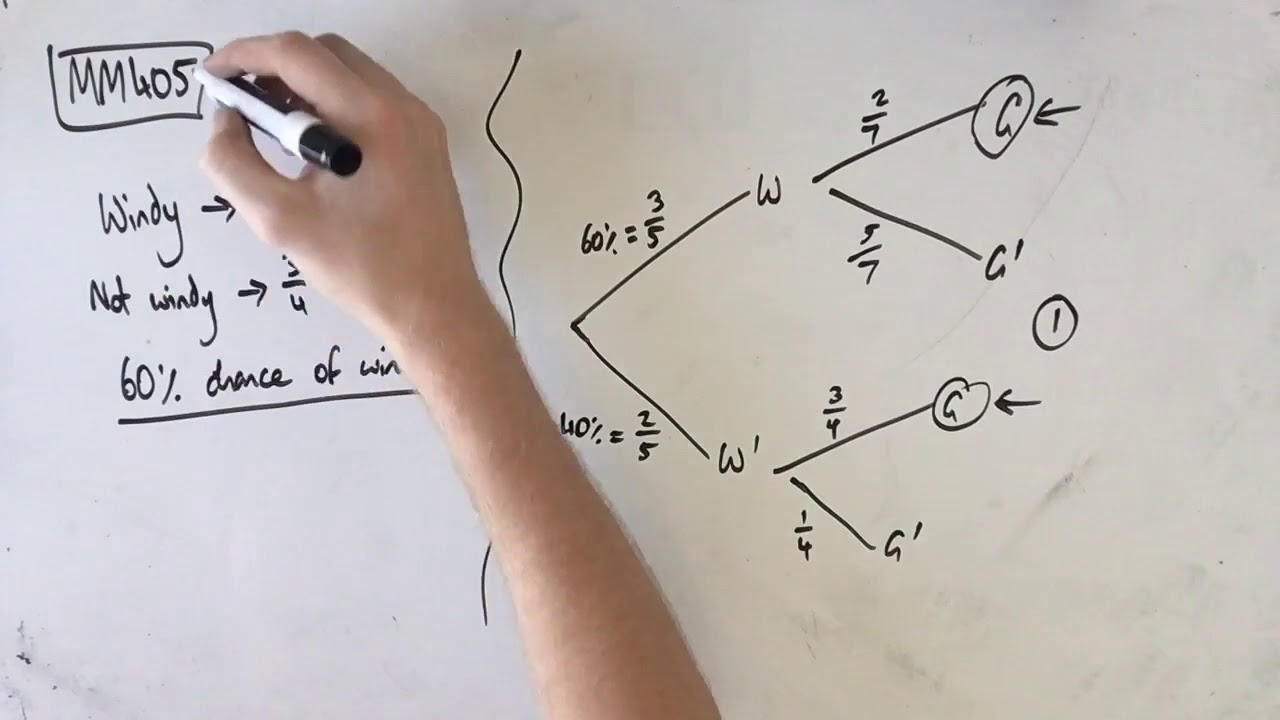 MM405
Windy →
Not windy → 3/4
60% chance of
60% = 3/5
W
2/7
G ←
5/7
G'
1
40% = 2/5
W'
3/4
G ←
1/4
G'